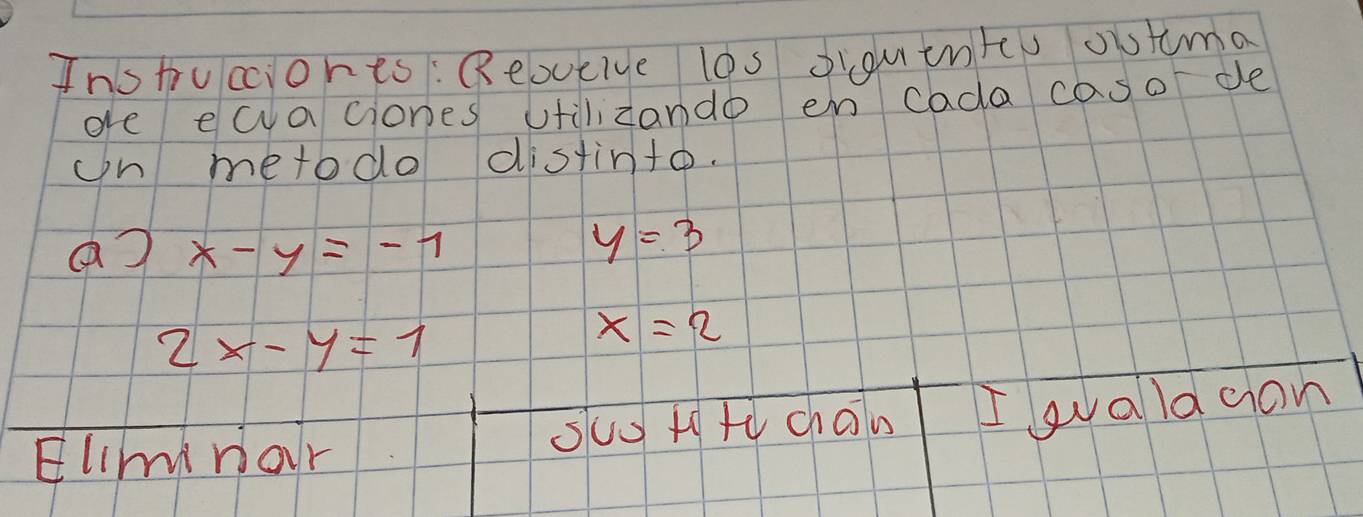 Instrucciones: Resuelve los siguientes sistema
de ecuaciones utilizando en cada caso de
un metodo distinto.
a) x - y = -1 y = 3
2x - y = 1 x = 2
Eliminar sustitución Igualación